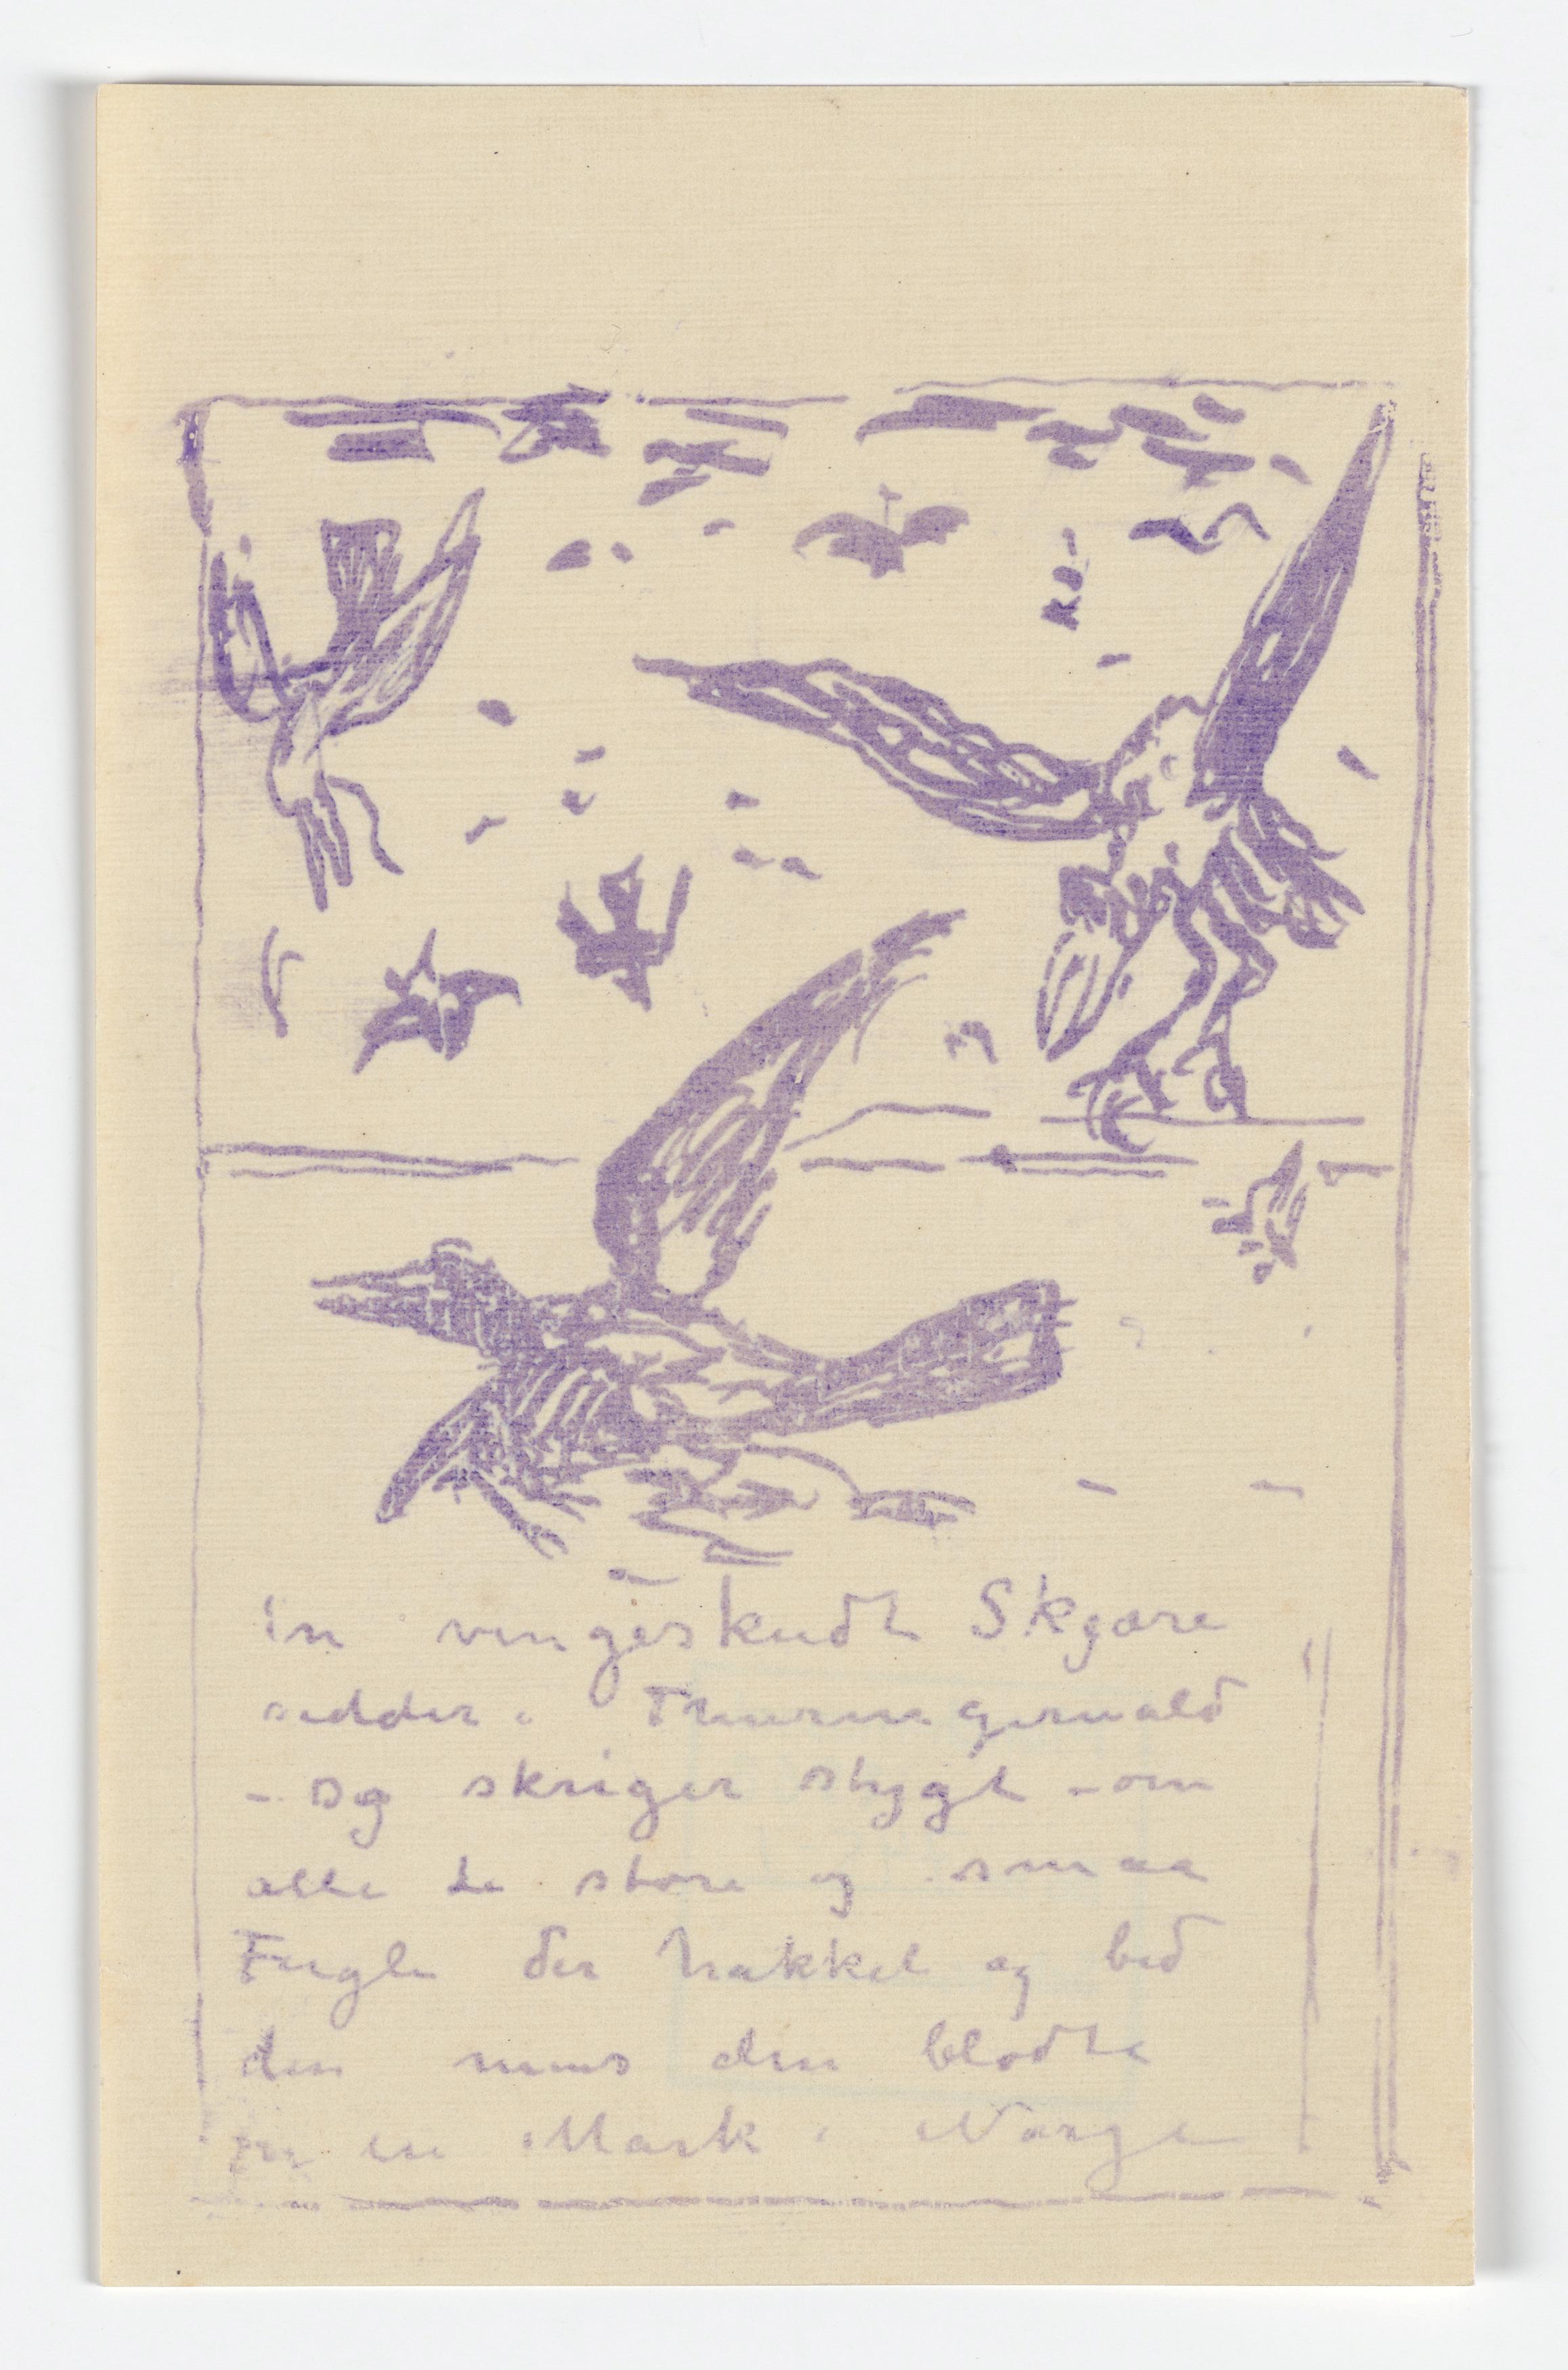 En vingeskudt Skjære
sidder i Thuringerwald
– og skriger stygt – om
alle de store og smaa
Fugle der hakket og bed
den mens den blødte
på en Mark i Norge